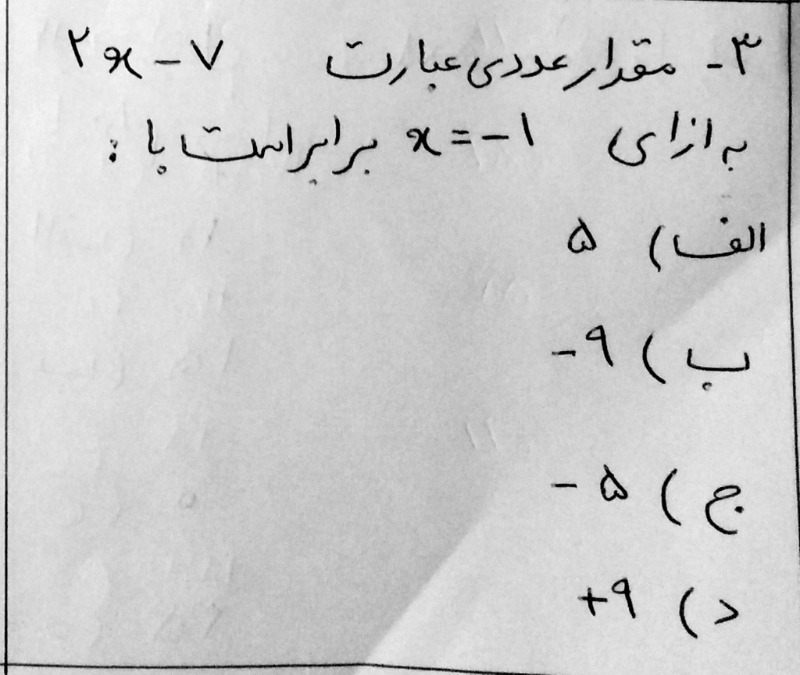 ۳- مقدار عددی عبارت ۲x - ۷
به ازای x = -۱ برابراست با :
الف) ۵
ب) -۹
ج) -۵
د) +۹